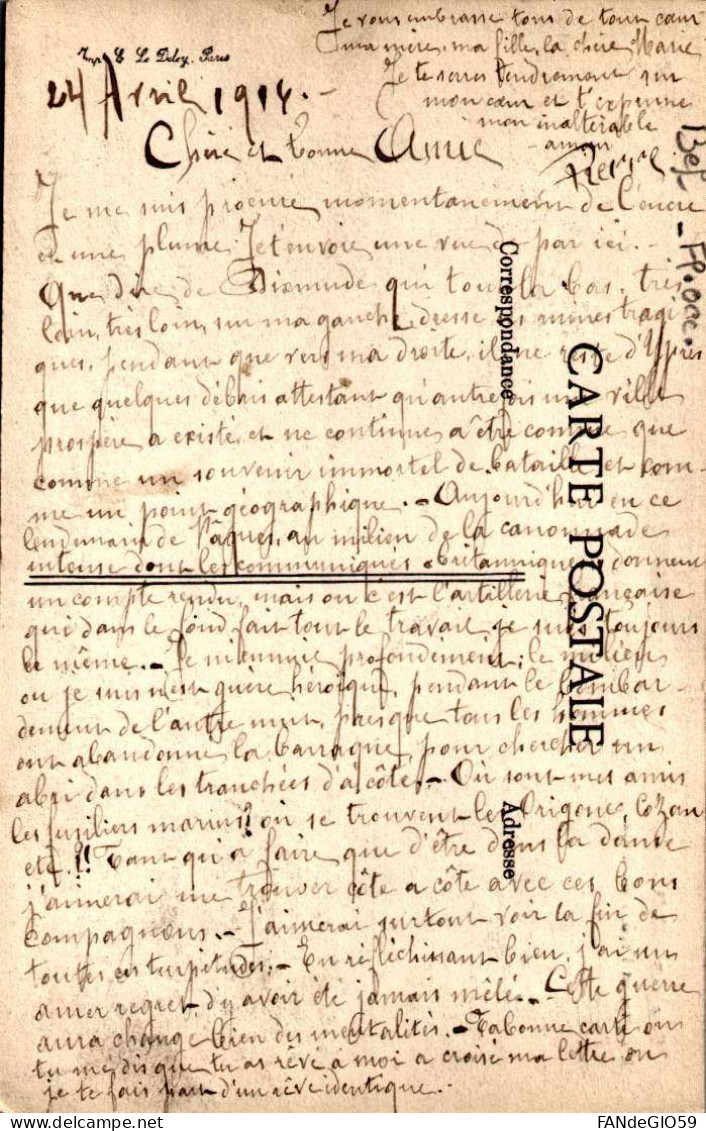 Je vous embrasse tous de tout cœur
ma mère, ma fille, la chère Marie
Je te serre tendrement sur
mon cœur et t'exprime
mon inaltérable
amour
Pierre
Imp. E. Le Deley, Paris
24 Avril 1916. -
Chère et bonne Amie
Je me suis procuré momentanement de l'encre
et une plume. Je t'envoie une vue de par ici. -
Que dire de Dixmude qui tout la bas, très
loin, très loin, sur ma gauche, dresse ses ruines tragi
ques, pendant que vers ma droite, il ne reste d'Ypres
que quelques débris attestant qu'autrefois une ville
prospère a existé, et ne continue a être connue que
comme un souvenir immortel de bataille et com-
me un point géographique. - Aujourd'hui en ce
lendemain de Pâques, au milieu de la canonnade
intense dont les communiqués britanniques donnent
un compte rendu, mais ou c'est l'artillerie française
qui dans le fond fait tout le travail, je suis toujours
le même. - Je m'ennuie profondement; le milieu
ou je suis n'est guère héroïque, pendant le bombar-
dement de l'autre nuit, presque tous les hommes
ont abandonné la barraque, pour chercher un
abri dans les tranchées d'à côté. - Où sont mes amis
les fusiliers marins? ou se trouvent les Origone, Cozan
etc.!! Tant qu'à faire que d'être dans la danse
j'aimerai me trouver côte a côte avec ces bons
compagnons. - J'aimerai surtout voir la fin de
toutes ces turpitudes. - En réfléchissant bien, j'ai un
amer regret d'y avoir été jamais mêlé. - Cette guerre
aura changé bien des mentalités. - Ta bonne carte ou
tu me dis que tu as rêvé à moi a croisé ma lettre ou
je te fais part d'un rêve identique. -
CARTE POSTALE
Correspondance
Adresse
Bel
- FP.occ.
FANdeGIO59